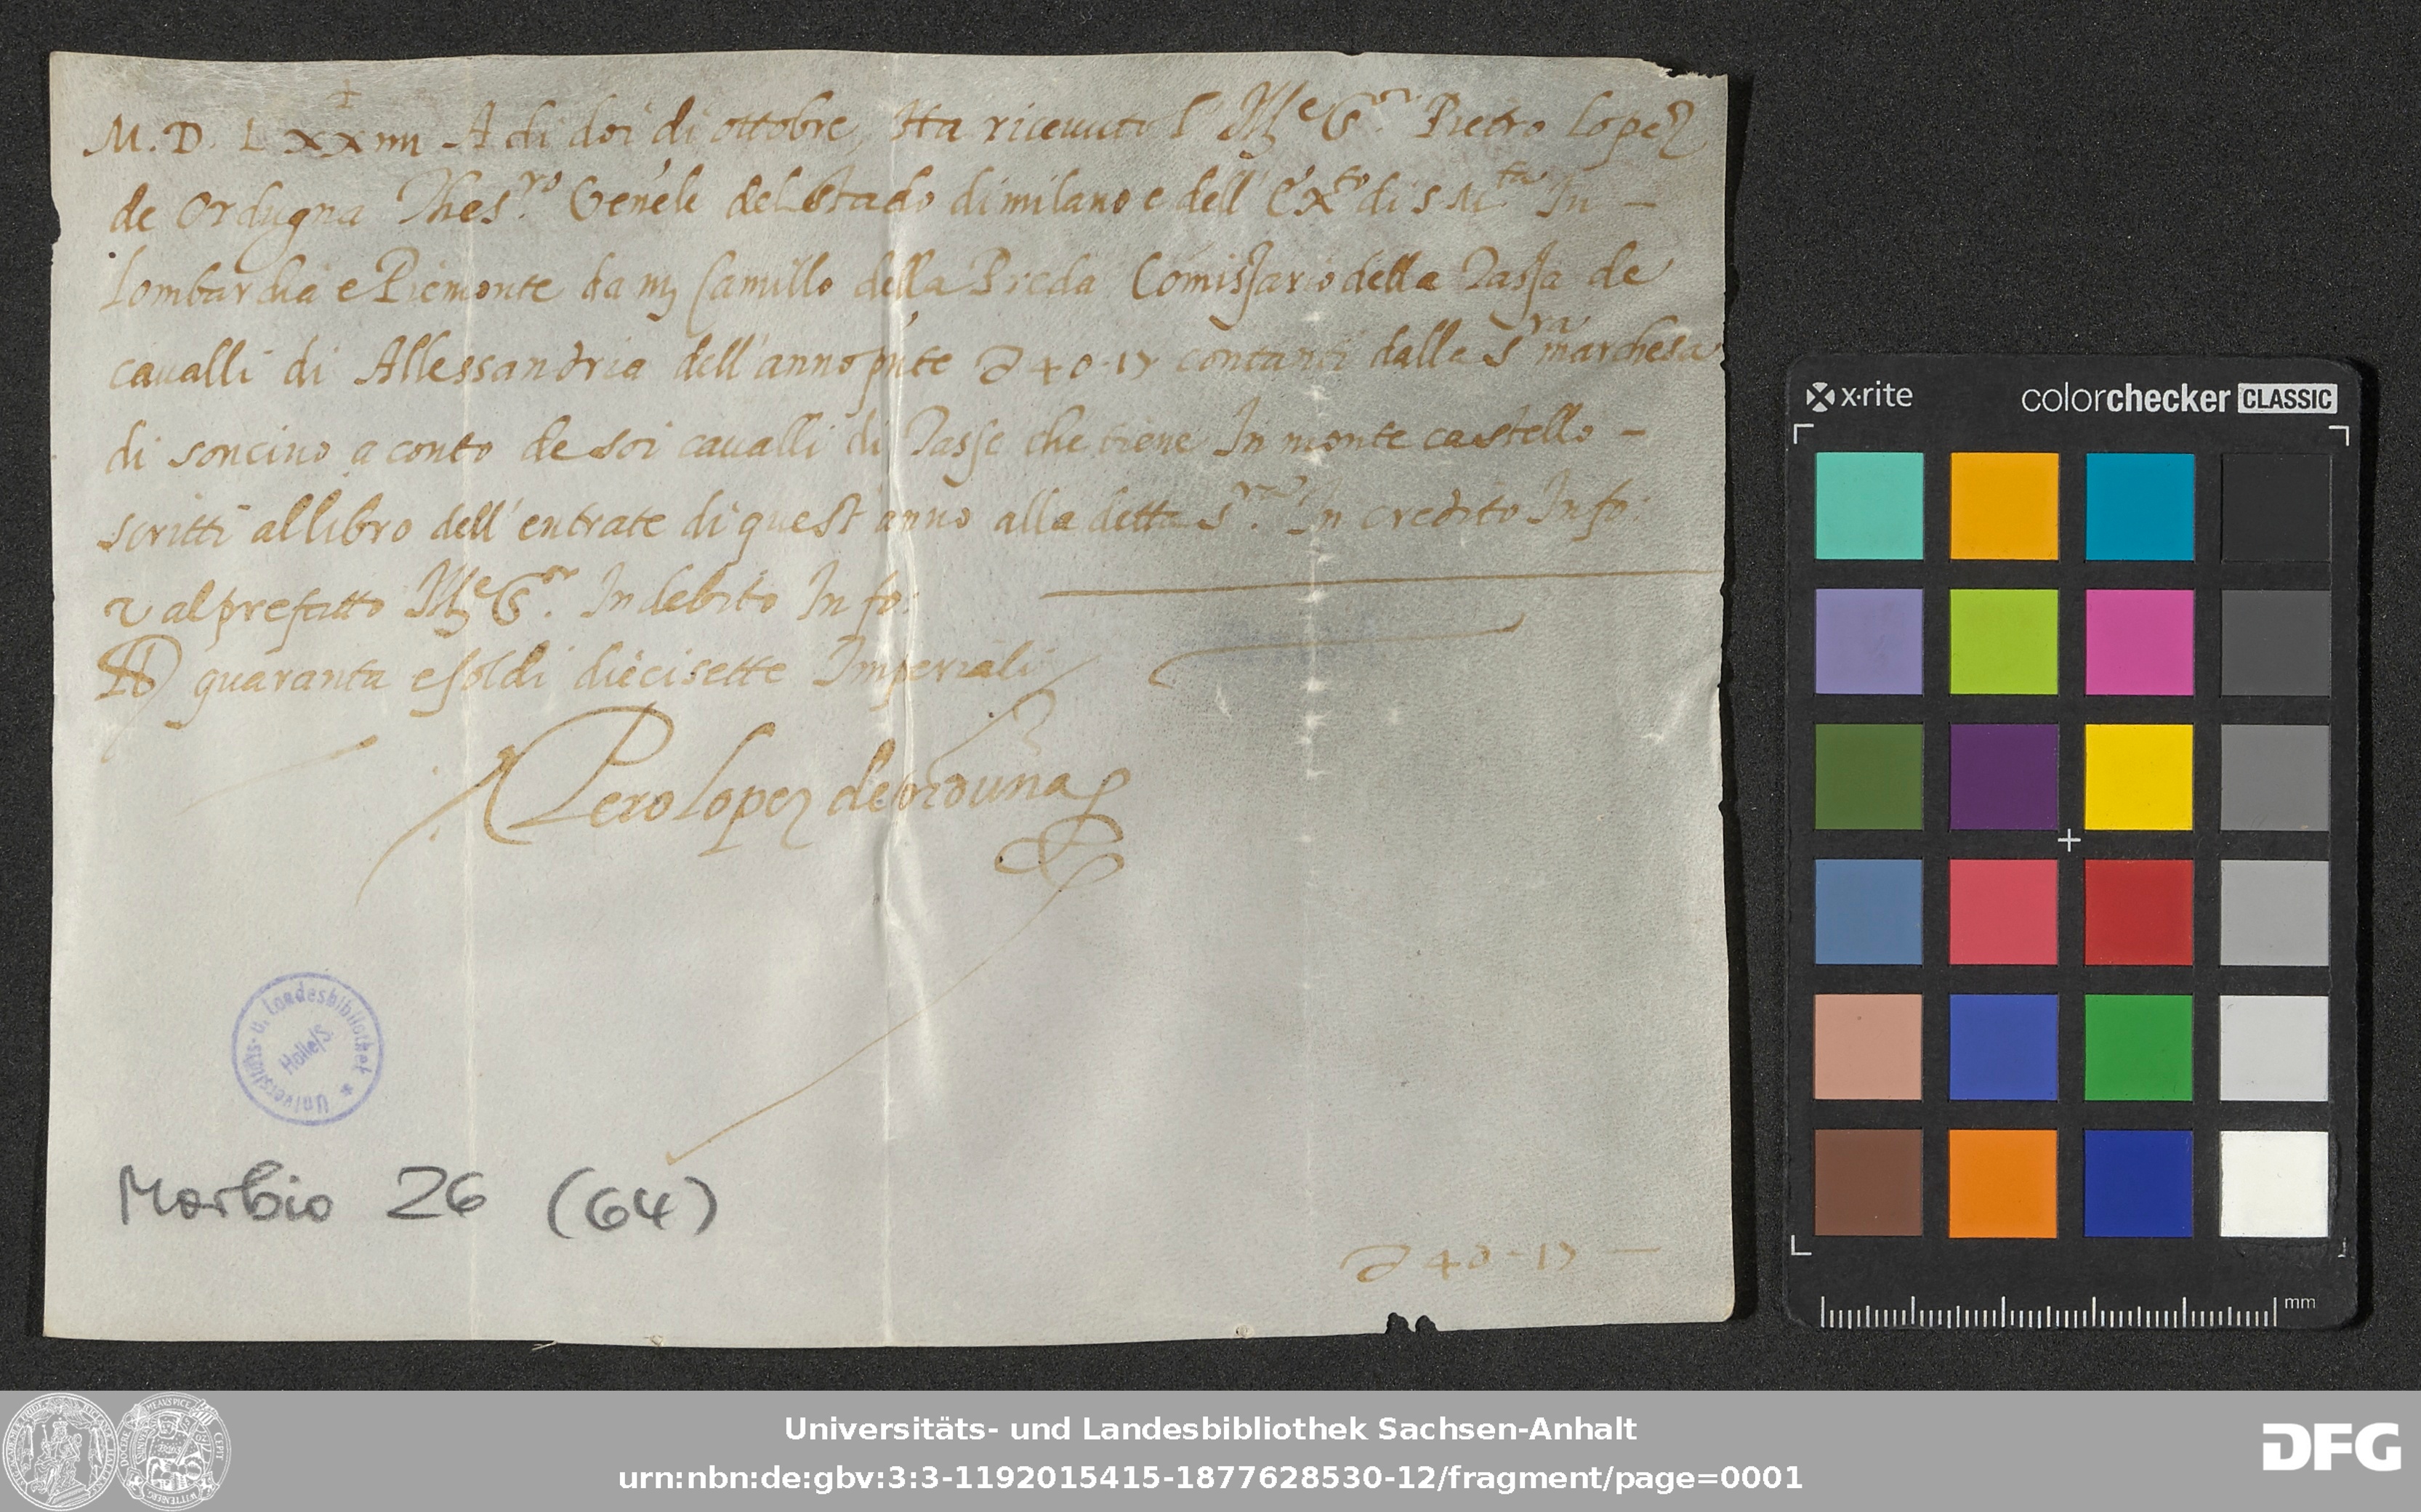 +
M. D. Lxxiiii A di doi di ottobre, Ha riceuuto l' M.co S.or Pietro Lopez
de Ordugna Thes.ro Genele del Stado di milano e dell' Ex.to di S M.ta In -
Lombardia e Piemonte da m Camillo della Preda Comissario della Tassa de
caualli di Allessandria dell' anno pnte 40-17 contanti dalla S.ra marchesa
di soncino a conto de soi caualli di Tasse che tiene In monte castello -
scritti al libro dell' entrate di quest' anno alla detta S.ra In credito In fo:
al prefatto S.or In debito In fo:
quaranta e soldi diecisette Imperiali
Pero Lopez de orduna
Universitäts- u. Landesbibliothek * Halle/S.
Morbio 26 (64)
40-17 -
x·rite colorchecker CLASSIC
mm
Universitäts- und Landesbibliothek Sachsen-Anhalt
urn:nbn:de:gbv:3:3-1192015415-1877628530-12/fragment/page=0001
DFG